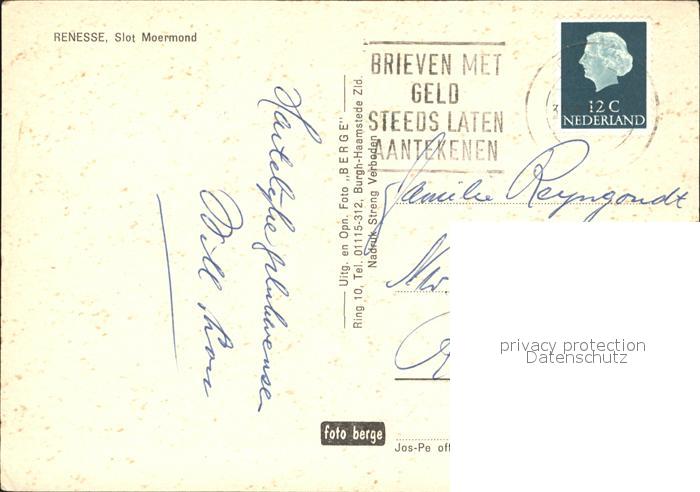 RENESSE, Slot Moermond
BRIEVEN MET
GELD
STEEDS LATEN
AANTEKENEN
12 C
NEDERLAND
Hartelijke gelukwensen
Will
Uitg. en Opn. Foto „BERGE"
Ring 10, Tel. 01115-312, Burgh-Haamstede Zld.
Nadruk Streng Verboden
Familie Reyngoudt
foto berge
Jos-Pe off
privacy protection
Datenschutz